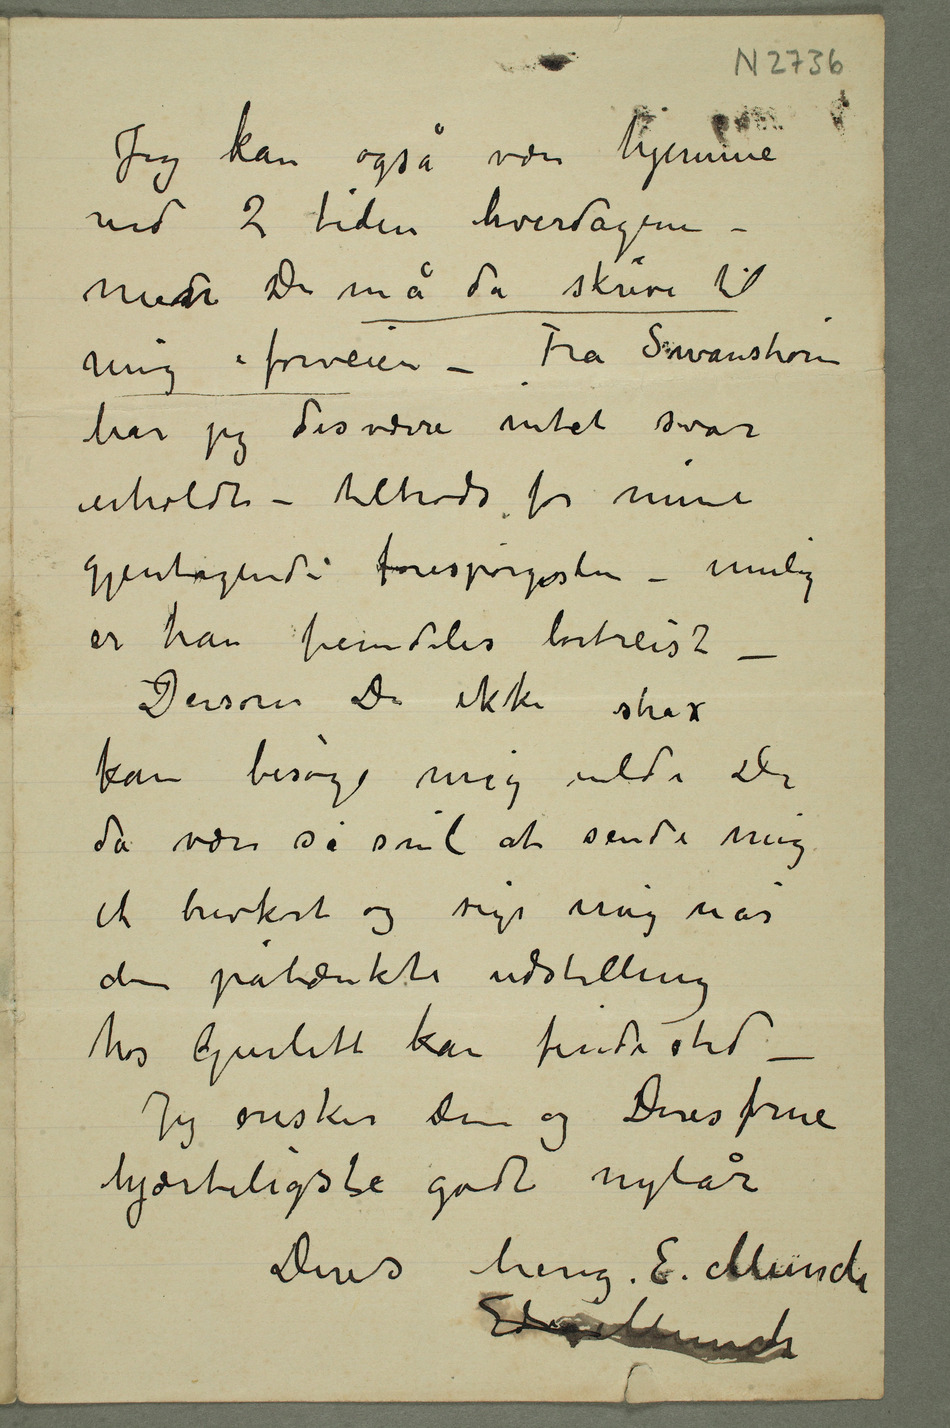 N 2736
Jeg kan også være hjemme
ved 2 tiden hverdagene –
men De må da skrive til
mig i forveien – Fra Swanstrøm
har jeg desværre intet svar
erholdt – tiltrods for mine
gjentagende forespørgsler – mulig
er han fremdeles bortreist –
Dersom De ikke strax
kan besøge mig vilde De
da være så snil at sende mig
et brevkort og sige mig når
den påtænkte udstilling
hos Gurlitt kan finde sted –
Jeg ønsker Dem og Deres frue
hjærteligste godt nytår
Deres heng. E. Munch
Edv Munch